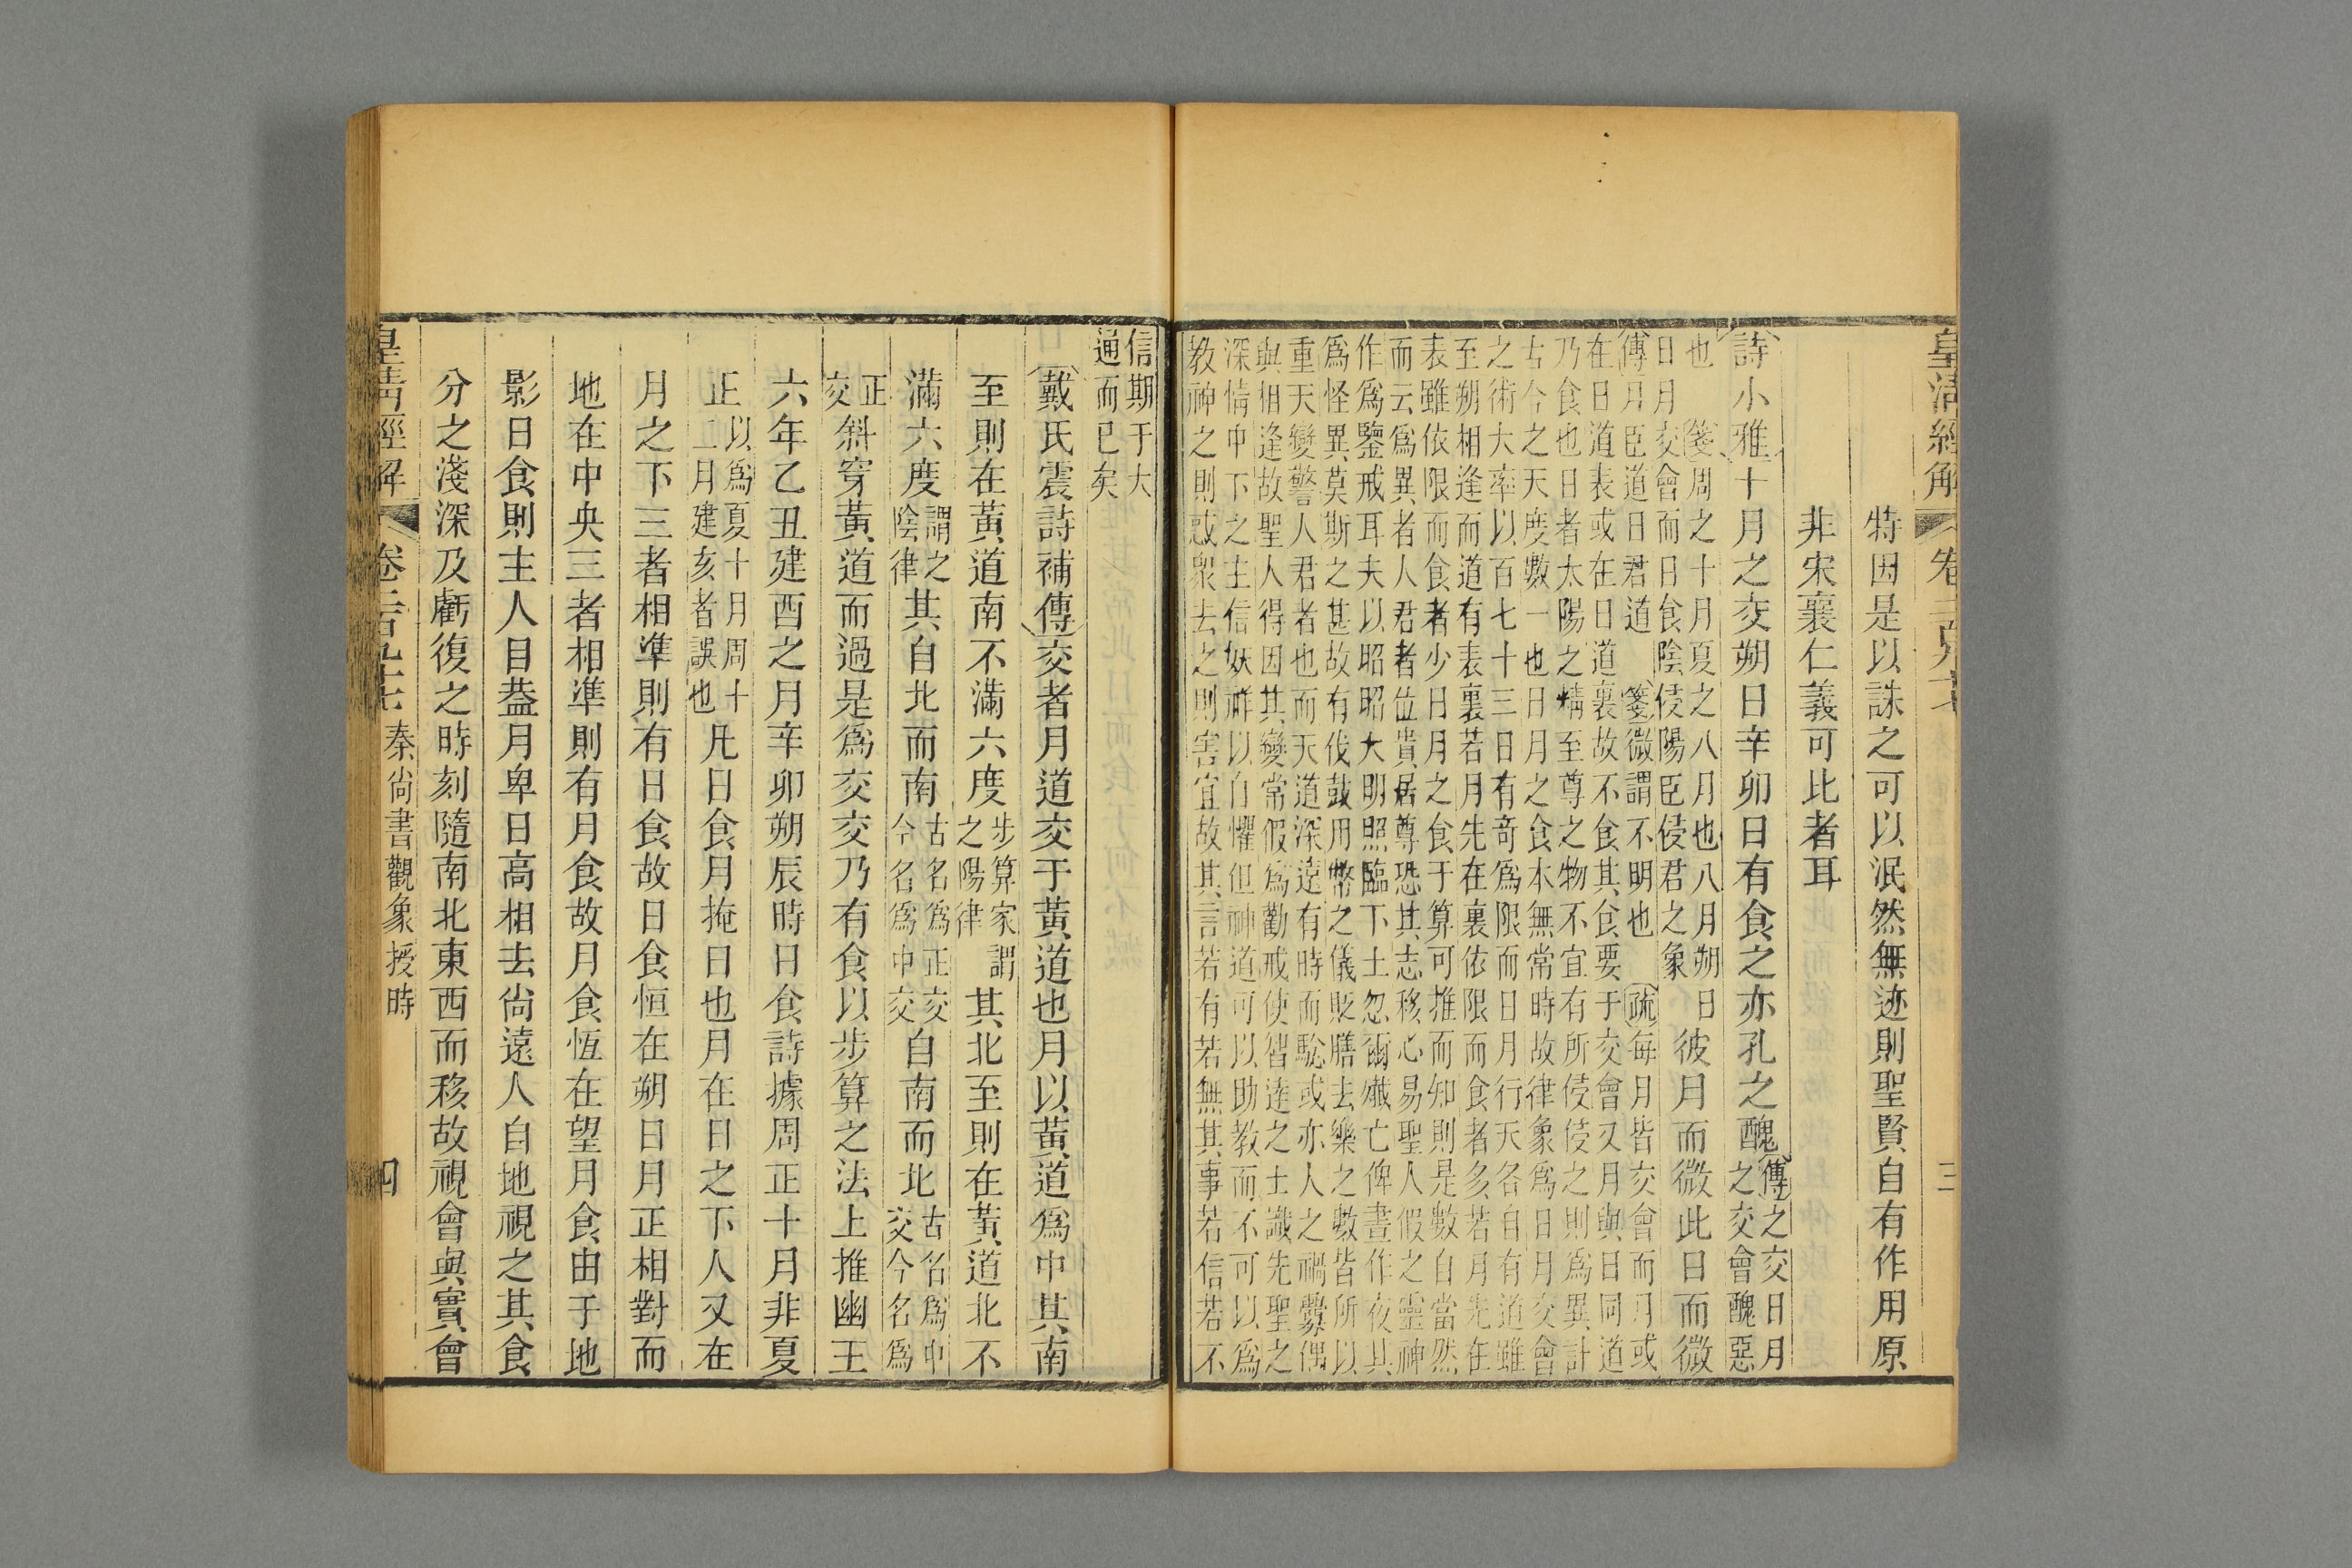 皇清經解 卷二百九十七 三
特因是以誅之可以泯然無迹則聖賢自有作用原
非宋襄仁義可比者耳
詩小雅十月之交朔日辛卯日有食之亦孔之醜傳之交日月
之交會醜惡
也 箋周之十月夏之八月也八月朔日
日月交會而日食陰侵陽臣侵君之象彼月而微此日而微
傳月臣道日君道 箋微謂不明也 疏每月皆交會而月或
在日道表或在日道裏故不食其食要于交會又月與日同道
乃食也日者太陽之精至尊之物不宜有所侵侵之則爲異計
古今之天度數一也日月之食本無常時故律象爲日月交會
之術大率以百七十三日有奇爲限而日月行天各自有道雖
至朔相逢而道有表裏若月先在裏依限而食者多若月先在
表雖依限而食者少日月之食于算可推而知則是數自當然
而云爲異者人君者位貴居尊恐其志移心易聖人假之靈神
作爲鑒戒耳夫以昭昭大明照臨下土忽爾殲亡俾晝作夜其
爲怪異莫斯之甚故有伐鼓用幣之儀貶膳去樂之數皆所以
重天變警人君者也而天道深遠有時而驗或亦人之禍釁偶
與相逢故聖人得因其變常假爲勸戒使智達之士識先聖之
深情中下之主信妖祥以自懼但神道可以助教而不可以爲
教神之則惑眾去之則害宜故其言若有若無其事若信若不
信期于大
通而已矣
戴氏震詩補傳交者月道交于黃道也月以黃道爲中其南
至則在黃道南不滿六度步算家謂
之陽律其北至則在黃道北不
滿六度謂之
陰律其自北而南古名爲正交
今名爲中交自南而北古名爲中
交今名爲
正
交斜穿黃道而過是爲交交乃有食以步算之法上推幽王
六年乙丑建酉之月辛卯朔辰時日食詩據周正十月非夏
正以爲夏十月周十
二月建亥者誤也凡日食月掩日也月在日之下人又在
月之下三者相準則有日食故日食恒在朔日月正相對而
地在中央三者相準則有月食故月食恆在望月食由于地
影日食則主人目葢月卑日高相去尚遠人自地視之其食
分之淺深及虧復之時刻隨南北東西而移故視會與實會
皇清經解 卷二百九十七 秦尚書觀象授時 四